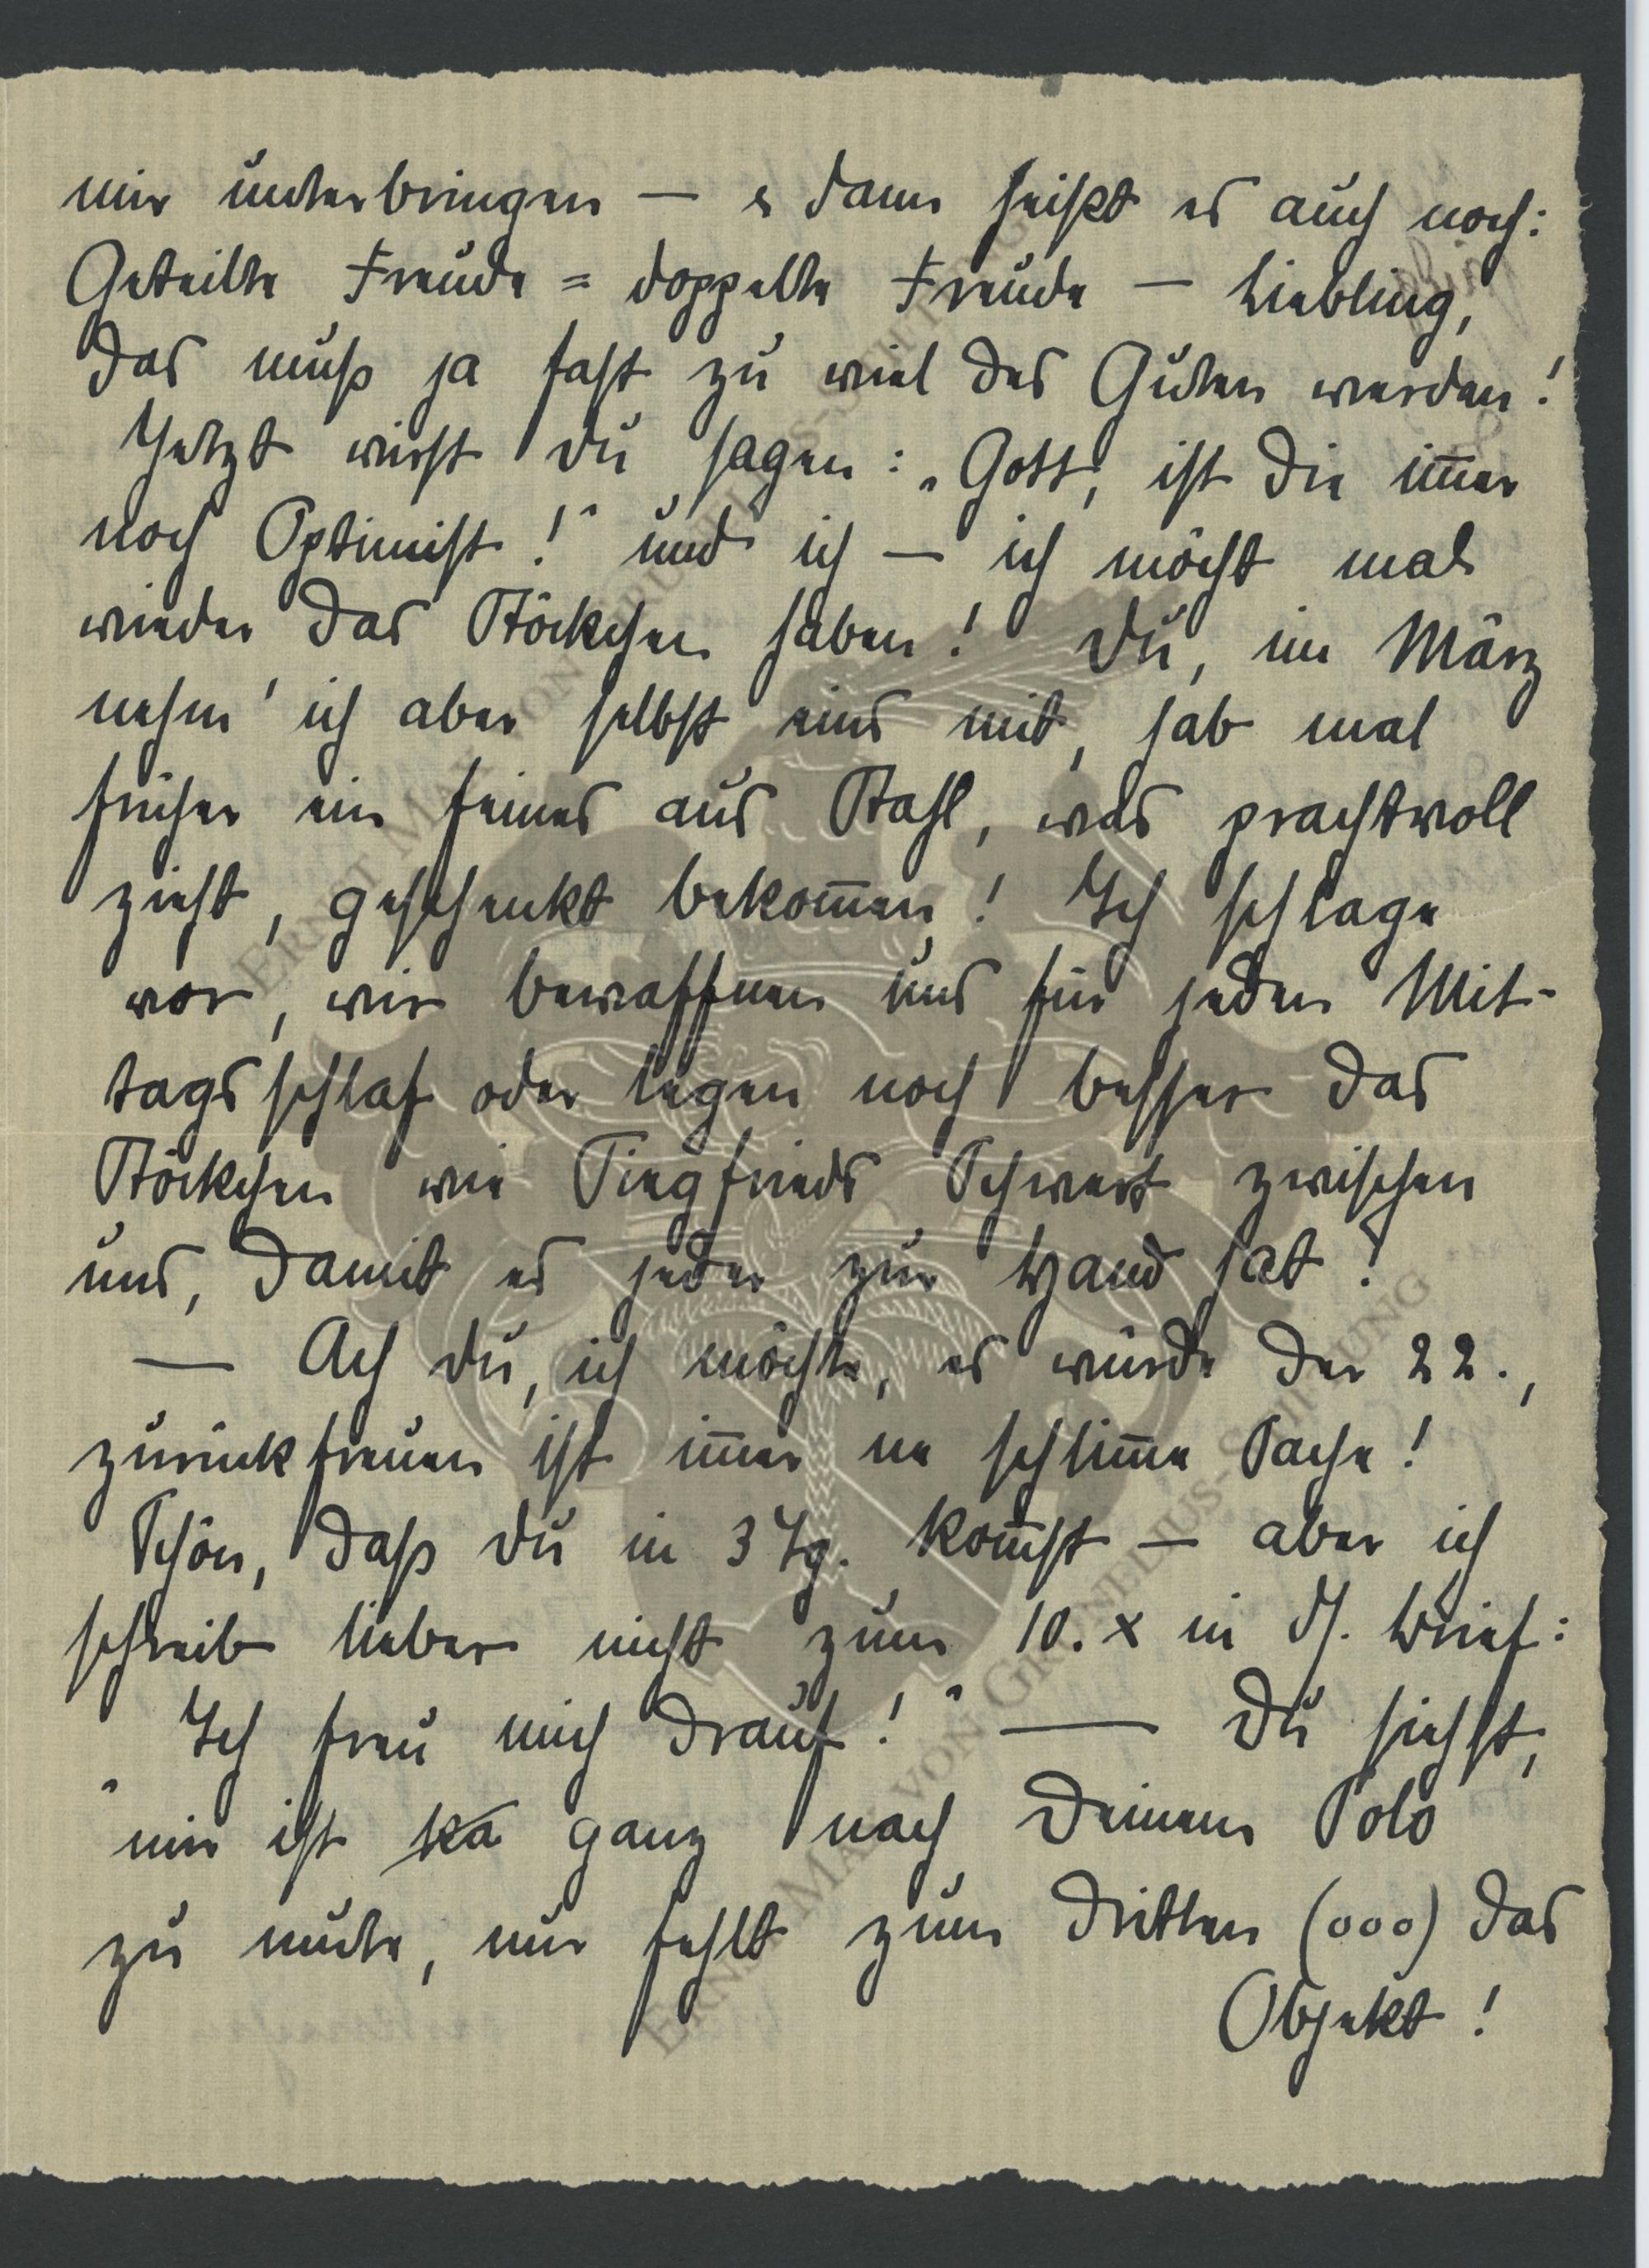 mir unterbringen — & dann heißt es auch noch:
Geteilte Freude = doppelte Freude — Liebling,
das muß ja fast zu viel des Guten werden!
Jetzt wirst Du sagen: „Gott, ist die im̅er
noch Optimist!“ und ich — ich möcht mal
wieder das Stöckchen haben! Du, im März
nehm' ich aber selbst eins mit, hab mal
früher ein feines aus Stahl, was prachtvoll
zieht, geschenkt bekom̅en! Ich schlage
vor, wir bewaffnen uns für jeden Mit-
tagsschlaf oder legen noch besser das
Stöckchen wie Siegfrieds Schwert zwischen
uns, damit es jeder zur Hand hat!
— Ach Du, ich möchte, es würde der 22.,
zurückfreuen ist im̅er ne schlim̅e Sache!
Schön, daß Du in 3 Tg. kom̅st — aber ich
schreib lieber nicht zum 10. x in d. Brief:
„Ich freu mich drauf!“ — Du siehst,
mir ist ka ganz nach Deinem Solo
zu mute, nur fehlt zum dritten (ooo) das
Objekt!
ERNST MAX VON GRUNELIUS-STIFTUNG
ERNST MAX VON GRUNELIUS-STIFTUNG